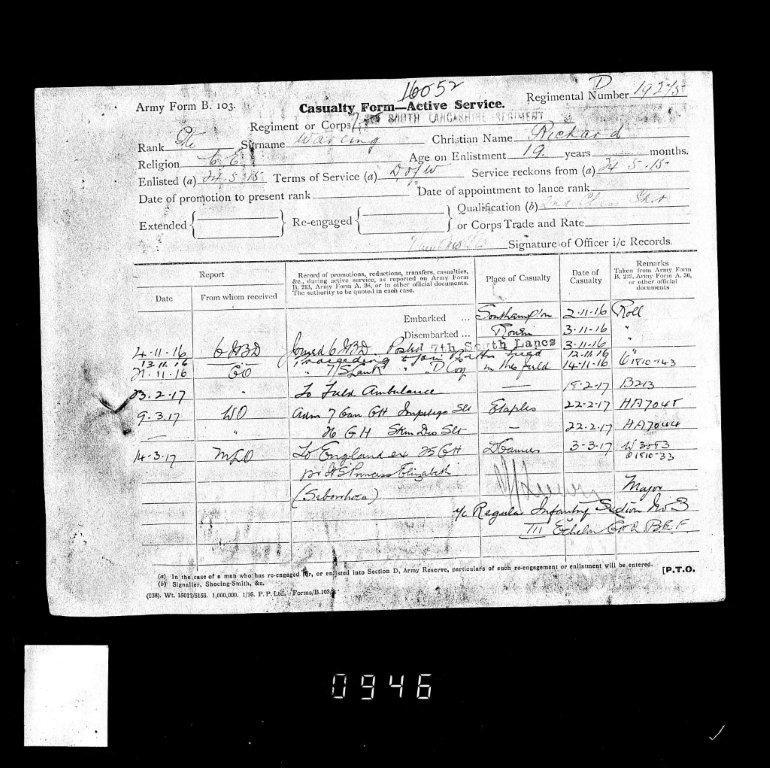 16052
Army Form B. 103. Casualty Form—Active Service. Regimental Number
Regiment or Corps SOUTH LANCASHIRE REGIMENT
Rank Pte Surname Waring Christian Name Richard
Religion C.E. Age on Enlistment 19 years months.
Enlisted (a) 24.5.15 Terms of Service (a) D of W Service reckons from (a) 24.5.15
Date of promotion to present rank Date of appointment to lance rank
Extended Re-engaged Qualification (b)
or Corps Trade and Rate
Signature of Officer i/c Records.
Report
Date From whom received
Record of promotions, reductions, transfers, casualties, &c., during active service, as reported on Army Form B. 213, Army Form A. 36, or in other official documents. The authority to be quoted in each case.
Place of Casualty
Date of Casualty
Remarks Taken from Army Form B. 213, Army Form A. 36, or other official documents
Embarked ... Southampton 2-11-16 Roll
Disembarked ... Rouen 3-11-16 "
4-11-16 Posted 7th South Lancs 3-11-16 "
13.11.16 proceeding to join 12.11.16
21-11-16 CO " D Coy in the field 14-11-16
23.2.17 " To Field Ambulance — 18-2-17 B213
9.3.17 WO Adm 7 Can GH Impetigo Etaples 22-2-17 HA7045
— " 26 GH — 22-2-17 HA7044
14-3-17 To England ex 26 GH 3-3-17 W3083
pr HS Princess Elizabeth
(Seborrhoea) Major
i/c Regular Infantry Section No 5
Echelon GHQ BEF
(a) In the case of a man who has re-engaged for, or enlisted into Section D, Army Reserve, particulars of such re-engagement or enlistment will be entered.
(b) Signaller, Shoeing-Smith, &c. [P.T.O.
1,000,000. 1/16. Forms/B.103/
0946